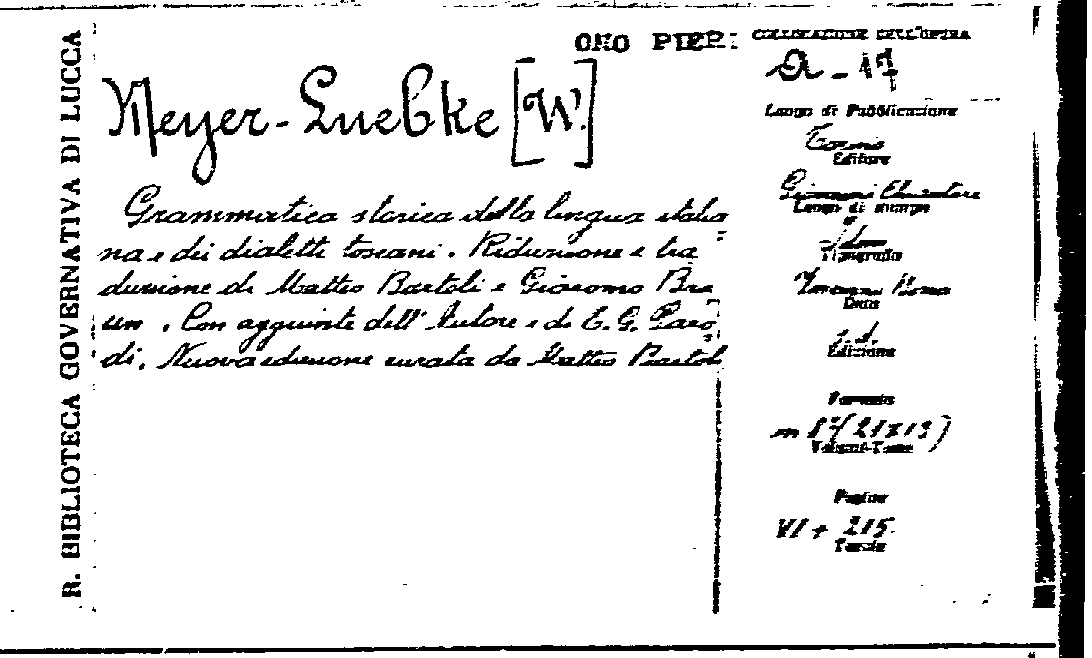 R. BIBLIOTECA GOVERNATIVA DI LUCCA
Meyer-Luebke [W.]
Grammatica storica della lingua italia
na e dei dialetti toscani. Riduzione e tra
duzione di Matteo Bartoli e Giacomo Bra
un. Con aggiunte dell'Autore e di E. G. Paro
di. Nuova edizione curata da Matteo Bartoli
ONO PIERI
COLLOCAZIONE DELL'OPERA
A - 17
Luogo di Pubblicazione
Torino
Editore
Giovanni Chiantore
Luogo di stampa
Idem
Tipografia
Data
s.d.
Edizione
Formato
in 8°(21x13)
Volumi-Tomo
Pagine
VI + 215
Tavole